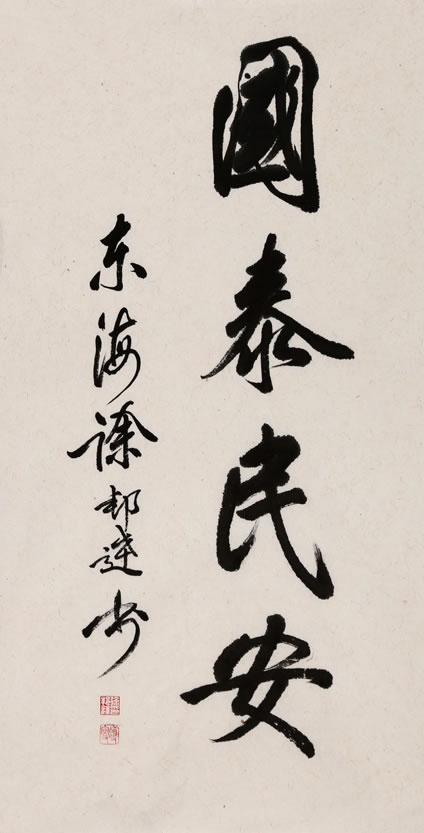 國泰民安
东海徐邦达书